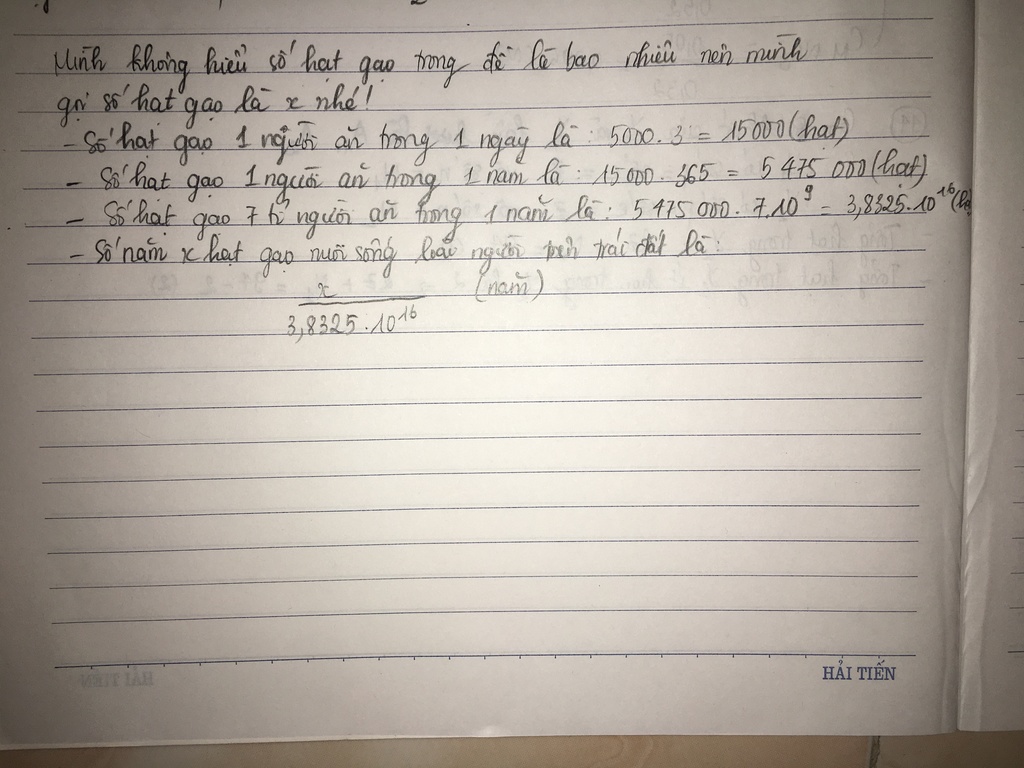 Mình không hiểu số hạt gạo trong đề là bao nhiêu nên mình
gọi số hạt gạo là x nhé!
- Số hạt gạo 1 người ăn trong 1 ngày là : 5000 . 3 = 15000 (hạt)
- Số hạt gạo 1 người ăn trong 1 năm là : 15 000 . 365 = 5 475 000 (hạt)
- Số hạt gạo 7 tỉ người ăn trong 1 năm là : 5 475 000 . 7.10⁹ = 3,8325.10¹⁶
- Số năm x hạt gạo nuôi sống loài người trên trái đất là :
x (năm)
3,8325 . 10¹⁶
HẢI TIẾN